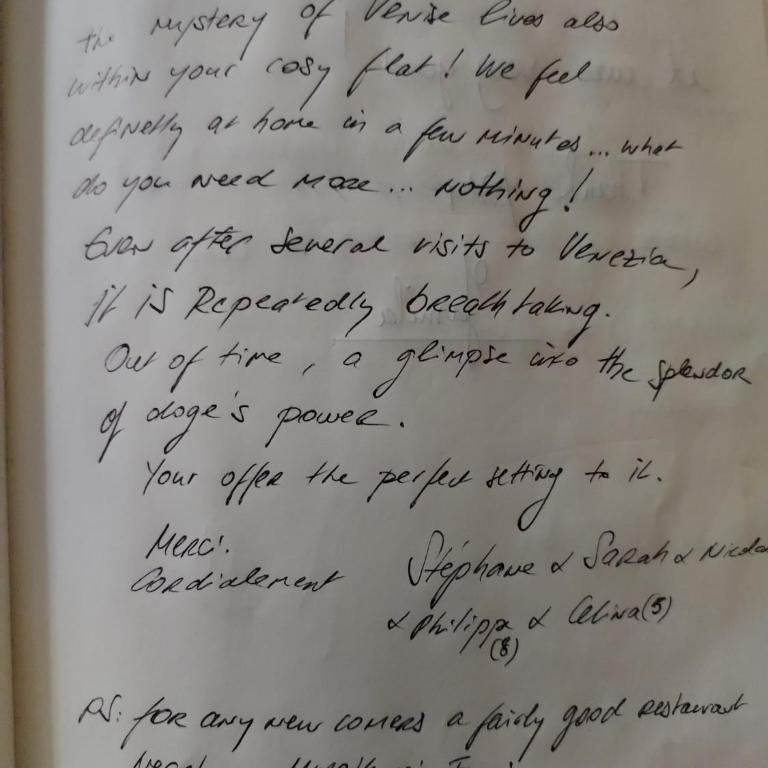 the mystery of Venise lives also
within your cosy flat! We feel
definetly at home in a few minutes... what
do you need more... nothing!
Even after several visits to Venezia,
it is Repeatedly breathtaking.
Out of time, a glimpse into the splendor
of doge's power.
Your offer the perfect setting to it.
Merci.
Cordialement
Stéphane & Sarah & Nicola
& Philippe & Celina (5)
(8)
PS: for any new comers a fairly good restaurant